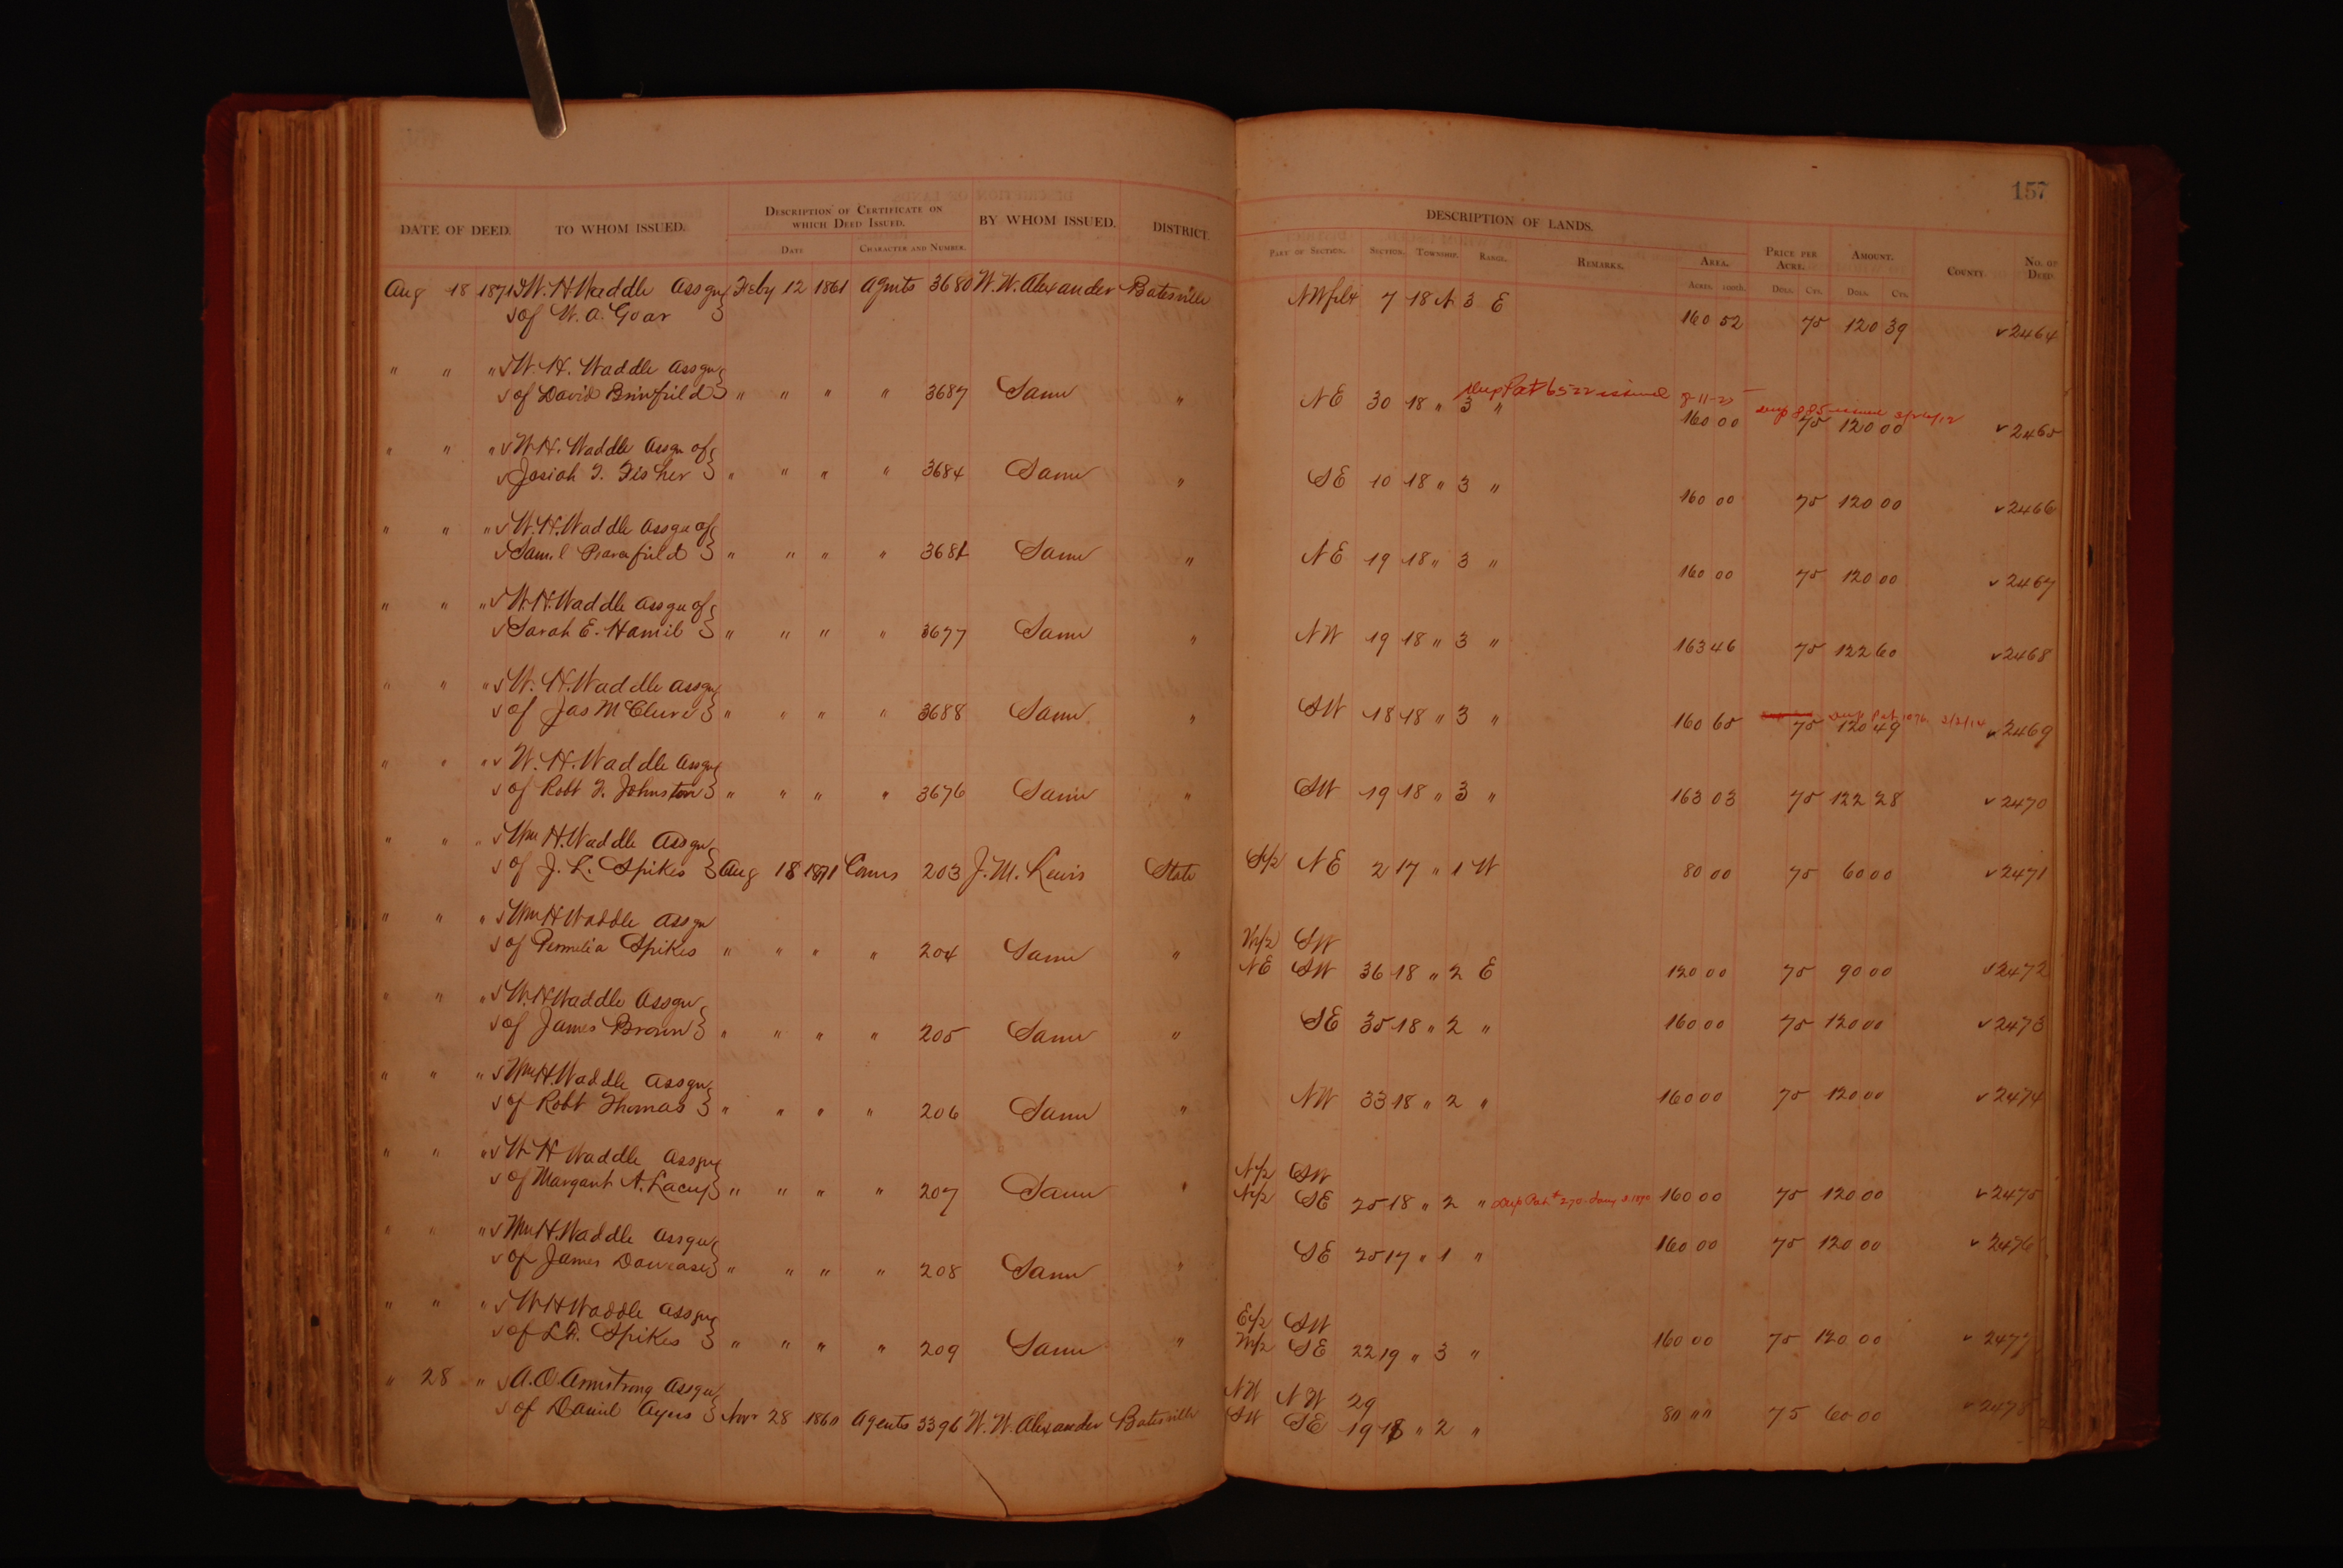 157
DESCRIPTION OF LANDS.
DATE OF DEED. TO WHOM ISSUED. DESCRIPTION OF CERTIFICATE ON WHICH DEED ISSUED. BY WHOM ISSUED. DISTRICT.
DATE CHARACTER AND NUMBER.
PART OF SECTION. SECTION. TOWNSHIP. RANGE. REMARKS. AREA. PRICE PER ACRE. AMOUNT. COUNTY NO. OF DEED.
ACRES. 100TH. DOLS. CTS. DOLS. CTS.
Aug 18 1871 W. H. Waddle Assgn Feby 12 1861 Agents 3680 W. W. Alexander Batesville NW frl 1/4 7 18 N 3 E 160 52 75 120 39 2464
of W. A. Goar
" " " W. H. Waddle Assgn
of David " " " " 3687 Same " NE 30 18 " 3 " Dup Pat 6522 issued 160 00 Dup 885 issued 3/26/12 75 120 00 2465
" " " W. H. Waddle Assgn of
Josiah T. Fisher " " " " 3684 Same " SE 10 18 " 3 " 160 00 75 120 00 2466
" " " W. H. Waddle Assgn of
Saml " " " " 3681 Same " NE 19 18 " 3 " 160 00 75 120 00 2467
" " " W. H. Waddle Assgn of
Sarah E. Hamil " " " " 3677 Same " NW 19 18 " 3 " 163 46 75 122 60 2468
" " " W. H. Waddle Assgn
of Jas McClure " " " " 3688 Same " SW 18 18 " 3 " 160 65 Dup Pat 1076 3/2/14 75 120 49 2469
" " " W. H. Waddle Assgn
of Robt T. Johnston " " " " 3676 Same " SW 19 18 " 3 " 163 03 75 122 28 2470
" " " Wm H. Waddle Assgn
of J. L. Spikes Aug 18 1871 Coms 203 J. M. Lewis State S/2 NE 2 17 " 1 W 80 00 75 60 00 2471
" " " Wm H Waddle Assgn W/2 SW
of Permelia Spikes " " " " 204 Same " NE SW 36 18 " 2 E 120 00 75 90 00 2472
" " " W. H Waddle Assgn
of James Brown " " " " 205 Same " SE 35 18 " 2 " 160 00 75 120 00 2473
" " " Wm H. Waddle Assgn
of Robt Thomas " " " " 206 Same " NW 33 18 " 2 " 160 00 75 120 00 2474
" " " W H Waddle Assgn N/2 SW
of Margaret A. Lacey " " " " 207 Same " N/2 SE 25 18 " 2 " Dup Pat # 270 160 00 75 120 00 2475
" " " Wm H. Waddle Assgn
of James " " " " 208 Same " SE 25 17 " 1 " 160 00 75 120 00 2476
" " " W H Waddle Assgn E/2 SW
of Spikes " " " " 209 Same " W/2 SE 22 19 " 3 " 160 00 75 120 00 2477
" 28 " A. O. Armstrong Assgn NW NW 29
of Daniel Ayers Nov 28 1860 Agents 3396 W. W. Alexander Batesville SW SE 19 18 " 2 " 80 " " 75 60 00 2478